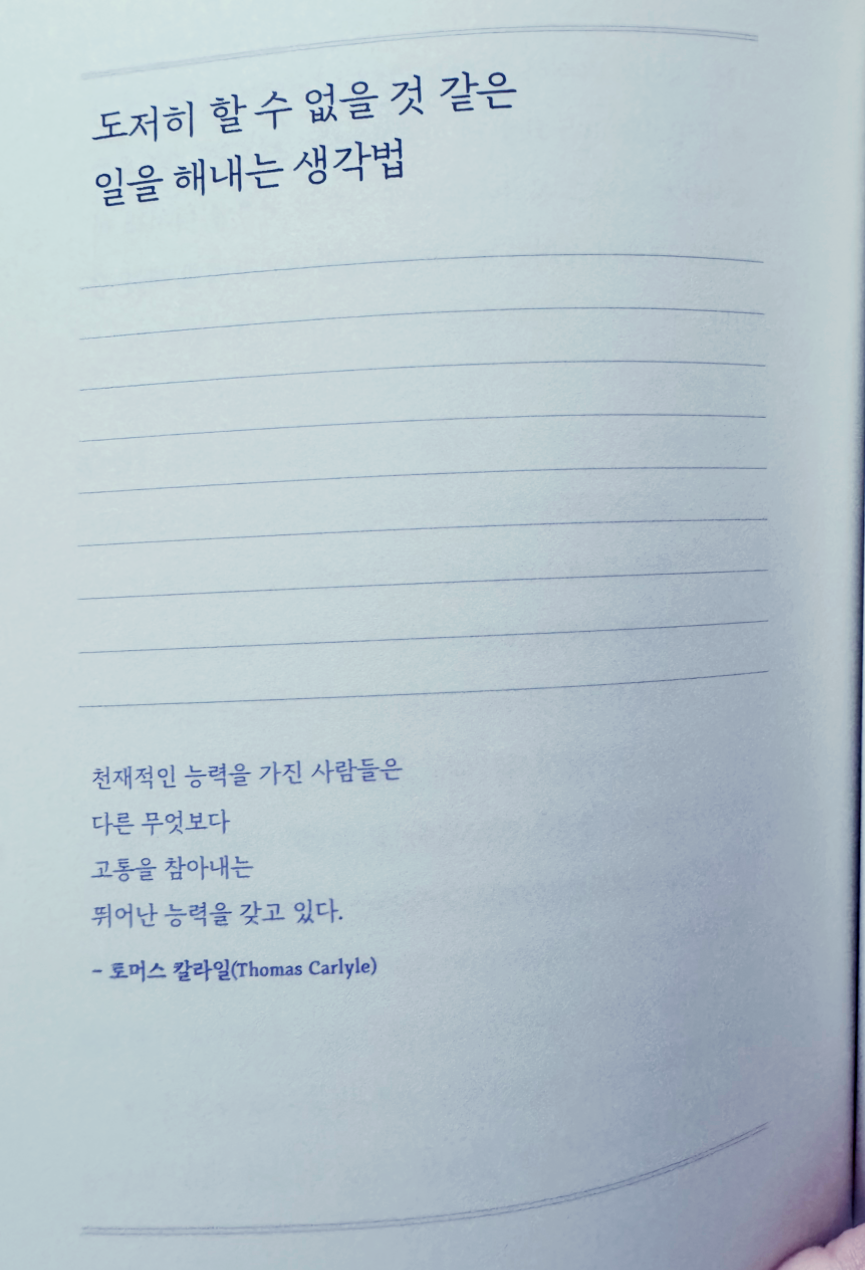 도저히 할 수 없을 것 같은
일을 해내는 생각법
천재적인 능력을 가진 사람들은
다른 무엇보다
고통을 참아내는
뛰어난 능력을 갖고 있다.
- 토머스 칼라일(Thomas Carlyle)